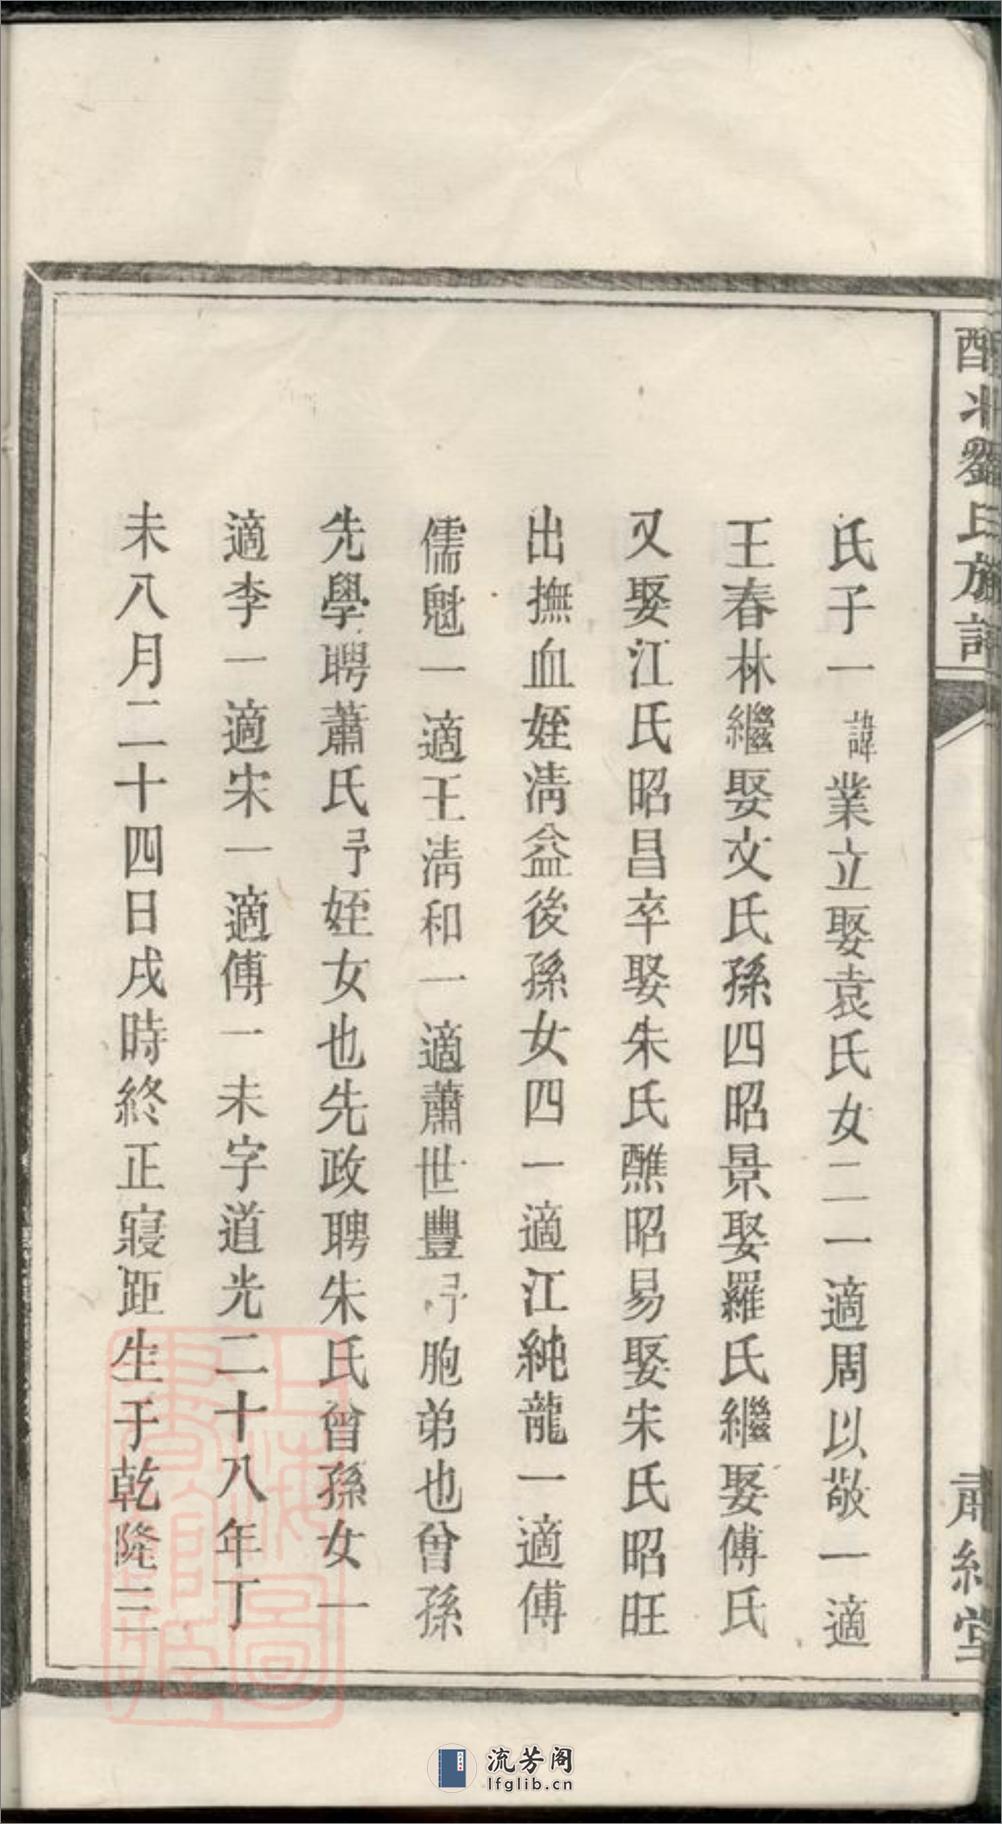 醴氷劉氏族譜
肅紀堂
氏子一諱業立娶袁氏女二一適周以敬一適
王春林繼娶文氏孫四昭景娶羅氏繼娶傅氏
又娶江氏昭昌卒娶朱氏醮昭易娶宋氏昭旺
出撫血姪清益後孫女四一適江純龍一適傅
儒魁一適王清和一適蕭世豐予胞弟也曾孫
先學聘蕭氏予姪女也先政聘朱氏曾孫女一
適李一適宋一適傅一未字道光二十八年丁
未八月二十四日戌時終正寢距生于乾隆三
上海圖書館藏
流芳阁
lfglib.cn